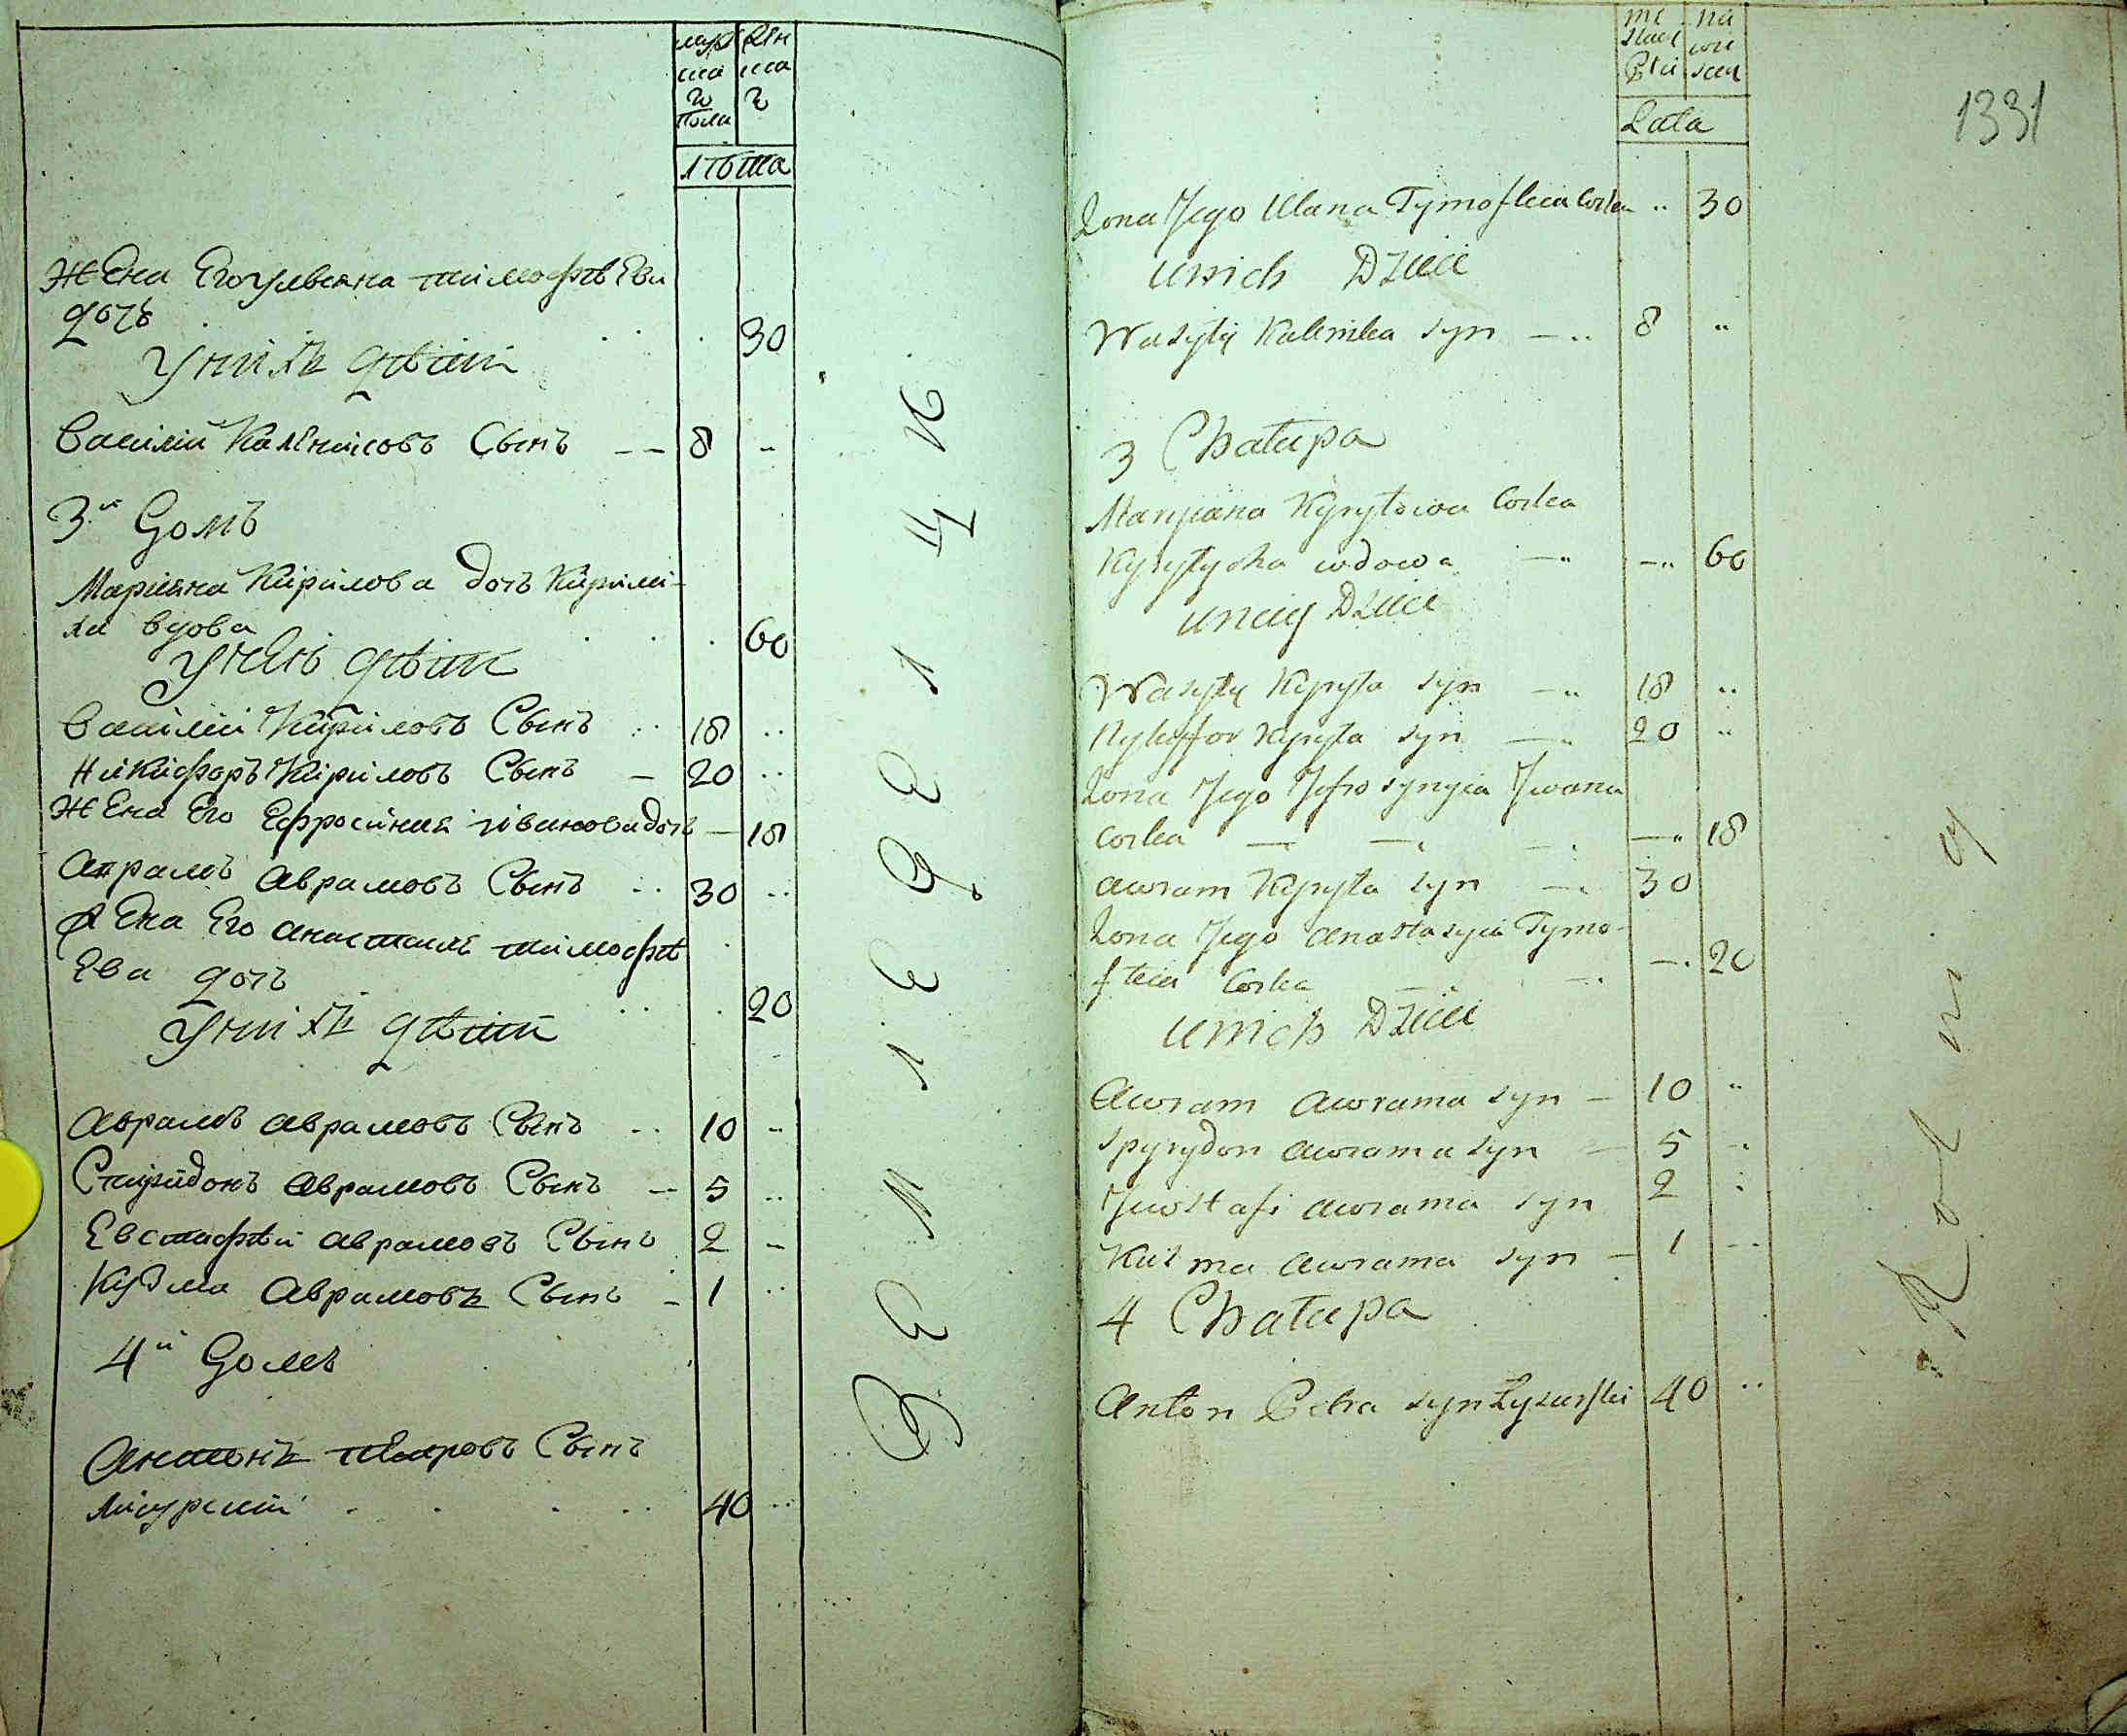 лѣта
Жена Его ульяна тимофѣева
дочь 30
У них дѣти
Василiй Калениковъ Сынъ -- 8 -
3й Домъ
Марияна Кирилова дочь Кирили-
ха вдова 60
У ней дѣти
Василiй Кириловъ Сынъ .. 18 ..
Никифоръ Кириловъ Сынъ — 20 ..
Жена Его Ефросиния иванова дочь — 18
Аврамъ Аврамовъ Сынъ .. 30 ..
Жена Его анастасия тимофѣ
Ева дочь 20
У них дѣти
Аврамъ аврамовъ Сынъ .. 10 ..
Спиридонъ Аврамовъ Сынъ -- 5 ..
Евстафѣй аврамовъ Сынъ 2 -
Кузма Аврамовъ Сынъ - 1 ..
4й Домъ
Антонъ петровъ Сынъ
40 ..
1331
Lata
Zona Jego Ulana Tymofteia Corka .. 30
Unich Dzieci
Wasyly Kalenika syn — .. 8 ..
3 Chatupa
Maryiana Kyrylowa Corka
Kyrylycha wdowa — .. — .. 60
Uneiy Dzieci
Wasyly Kyryla syn — .. 18 ..
Nykyffor Kyryla syn — .. 20 ..
Zona Jego Jefrosynyia Jwana
Corka — — . — . — .. 18
Awram Kyryla syn — 30
Zona Jego Anastasyia Tymo-
fteia Corka — . — . 20
Unich Dzieci
Awram Awrama syn — 10 ..
Spyrydon Awrama syn — 5 ..
Jwostafi Awrama syn 2 ..
Kuzma Awrama syn — 1 ..
4 Chatupa
Anton Petra syn Łysurski 40 ..